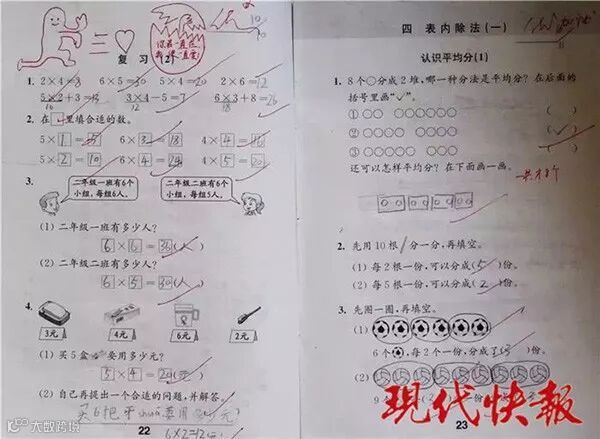 复 习 (2)
1. 2×4=8 6×5=30 5×4=20 2×6=12
5×2+3=13 3×4-5=7 6×3+8=26
10 12 18
2. 在□里填合适的数。
5×1=5 6×3=18 4×4=16
5×2=10 6×4=24 4×5=20
3.
二年级一班有6个小组,每组6人。
二年级二班有6个小组,每组5人。
(1) 二年级一班有多少人?
6×6=36(人)
(2) 二年级二班有多少人?
6×5=30(人)
4.
3元 4元 6元 2元
(1) 买5盒 要用多少元?
5×4=20(元)
(2) 自己再提出一个合适的问题,并解答。
买6把牙shuā要用 元?
6×2=12
22
四 表内除法(一)
认识平均分(1)
1. 8个○分成2堆,哪一种分法是平均分?在后面的
括号里画“✓”。
① ○○ ○○○○○○ ( )
② ○○○○ ○○○○ (✓)
③ ○○○○○ ○○○ ( )
还可以怎样平均分?在下面画一画。
2. 先用10根 分一分,再填空。
(1) 每2根一份,可以分成(5)份。
(2) 每5根一份,可以分成(2)份。
3. 先圈一圈,再填空。
(1)
6个 ,每2个一份,分成了(3)份。
(2)
9
现代快报
23
大数跨境